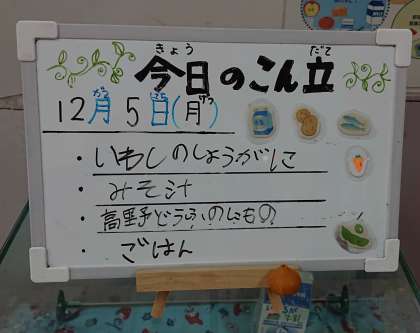 今日のこん立
きょう だて
12月5日(月)
がつ にち げつ
・いわしのしょうがに
・みそ汁
・高野どうふのにもの
・ごはん